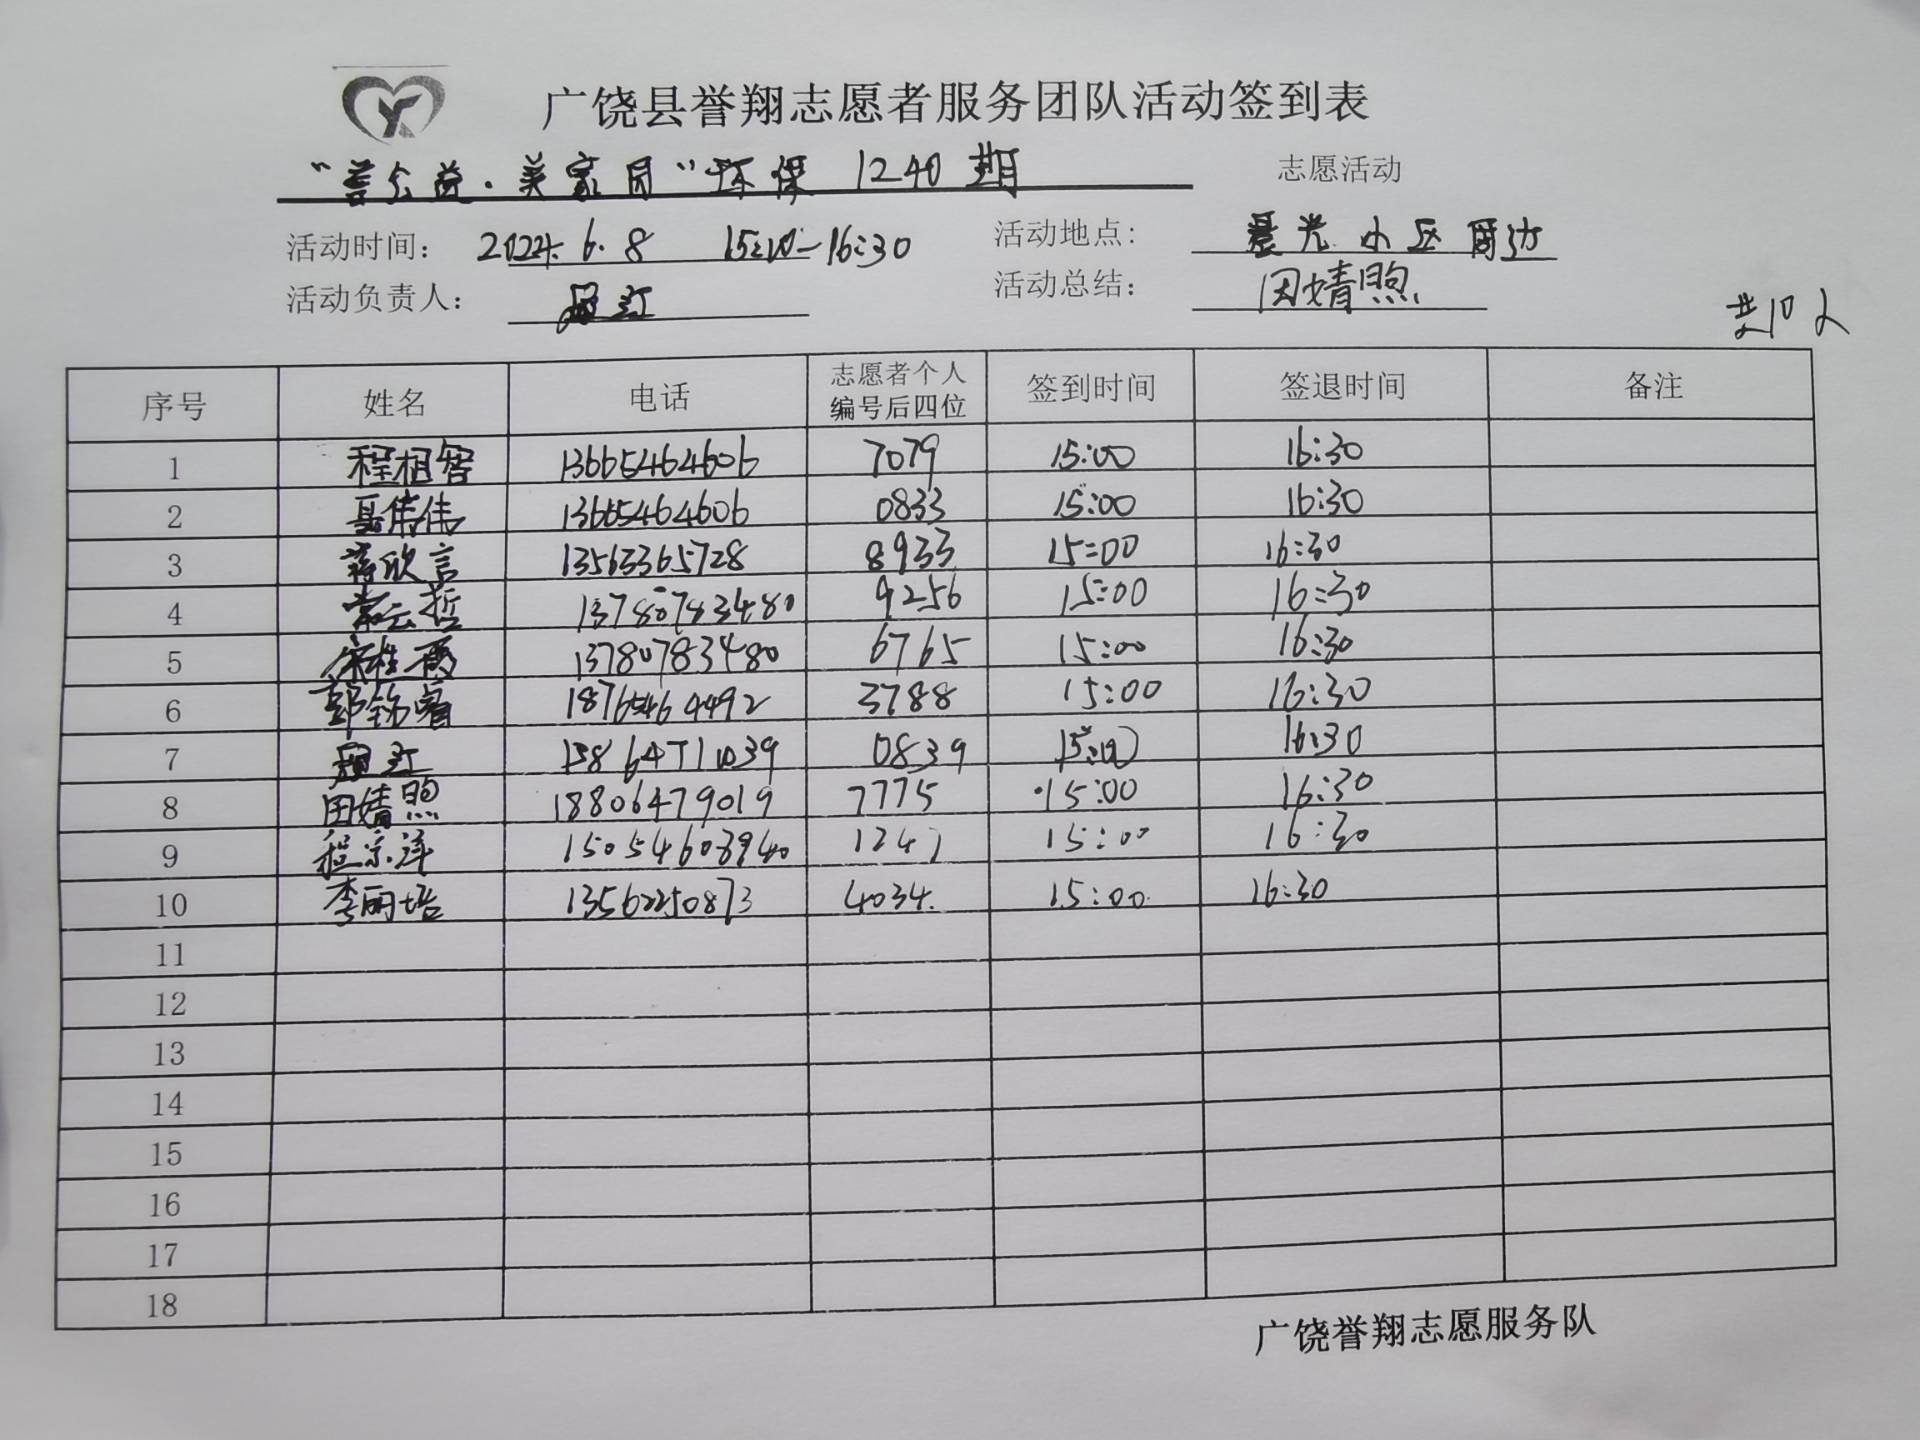 广饶县誉翔志愿者服务团队活动签到表
“善公益·美家园”环保 1240期 志愿活动
活动时间： 2024.6.8 15:10-16:30 活动地点： 晨光小区周边
活动负责人： 活动总结： 田婧煦
共10人
序号 姓名 电话 志愿者个人编号后四位 签到时间 签退时间 备注
1 程相 13665464606 7079 15:00 16:30
2 聂伟伟 13665464606 0833 15:00 16:30
3 蒋欣言 13563365728 8933 15:00 16:30
4 常云哲 13780783480 9256 15:00 16:30
5 13780783480 6765 15:00 16:30
6 郭铭睿 18765464492 3788 15:00 16:30
7 15864711039 0839 15:00 16:30
8 田婧煦 18806479019 7775 15:00 16:30
9 程宗洋 15054608940 1247 15:00 16:30
10 李丽培 13562250873 4034. 15:00 16:30
11
12
13
14
15
16
17
18
广饶誉翔志愿服务队